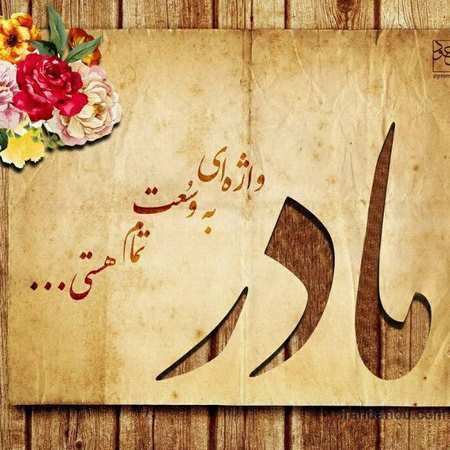 مادر
واژه‌ای
به وسعت
تمام
هستی ...